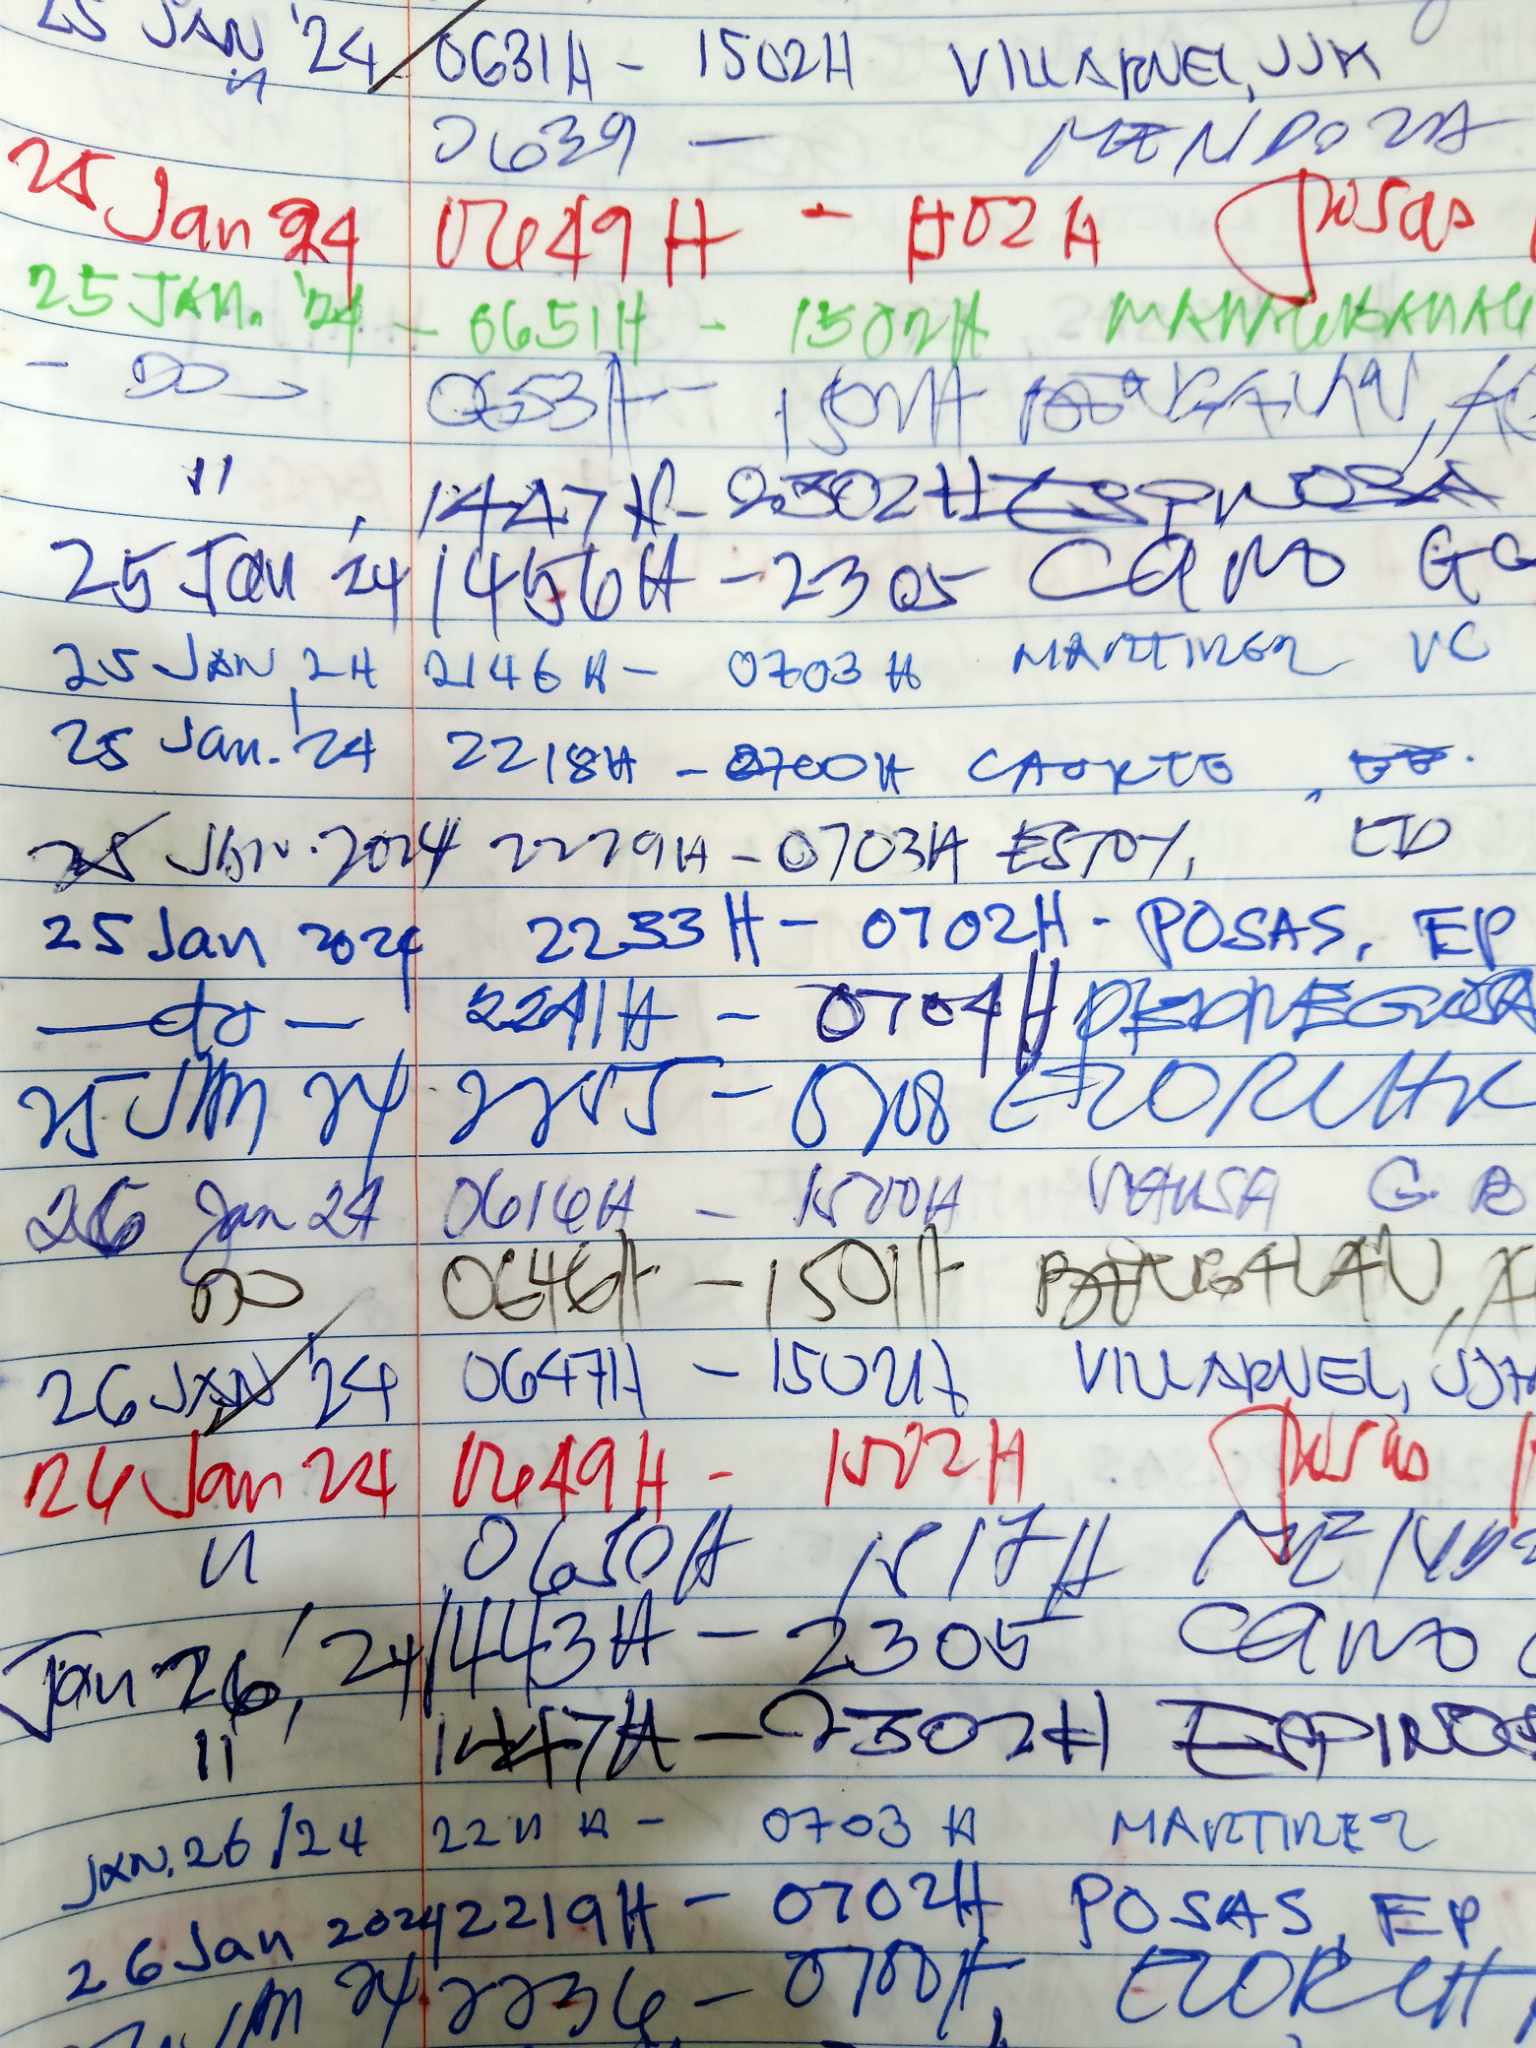 25 JAN '24 0631H - 1502H VILLARUEL, JJK
" 0639 - MENDOZA
25 Jan 24 0649H - 1502H Posas
25 JAN. '24 - 0651H - 1502H
- DO - 0653H - 1502H
" 1447H - 2302H ESPINOSA
25 Jan '24 1456H - 2305 Cano GG
25 JAN '24 2146H - 0703H MARTINEZ VC
25 Jan. '24 2218H - 0700H
25 JAN. 2024 2229H - 0703H ESTOY, ED
25 Jan 2024 2233H - 0702H - POSAS, EP
- do - 2241H - 0704H
25 JAN 24 2255 - 0708
26 Jan 24 0616H - 1500H G B
DO 0646H - 1501H BANGALAN,
26 JAN '24 0647H - 1502H VILLARUEL, JJK
26 Jan 24 0649H - 1502H Posas
" 0650H 1517H
Jan 26, '24 1443H - 2305 Cano
" 1447H - 2302H ESPINOS
JAN. 26/24 2211H - 0703H MARTINEZ
26 Jan 2024 2219H - 0702H POSAS, EP
24 2236 - 0700H